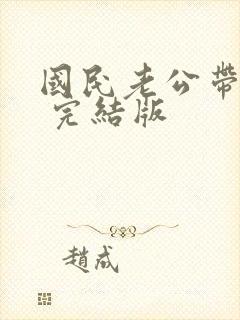 國民老公帶
完結版
趙成